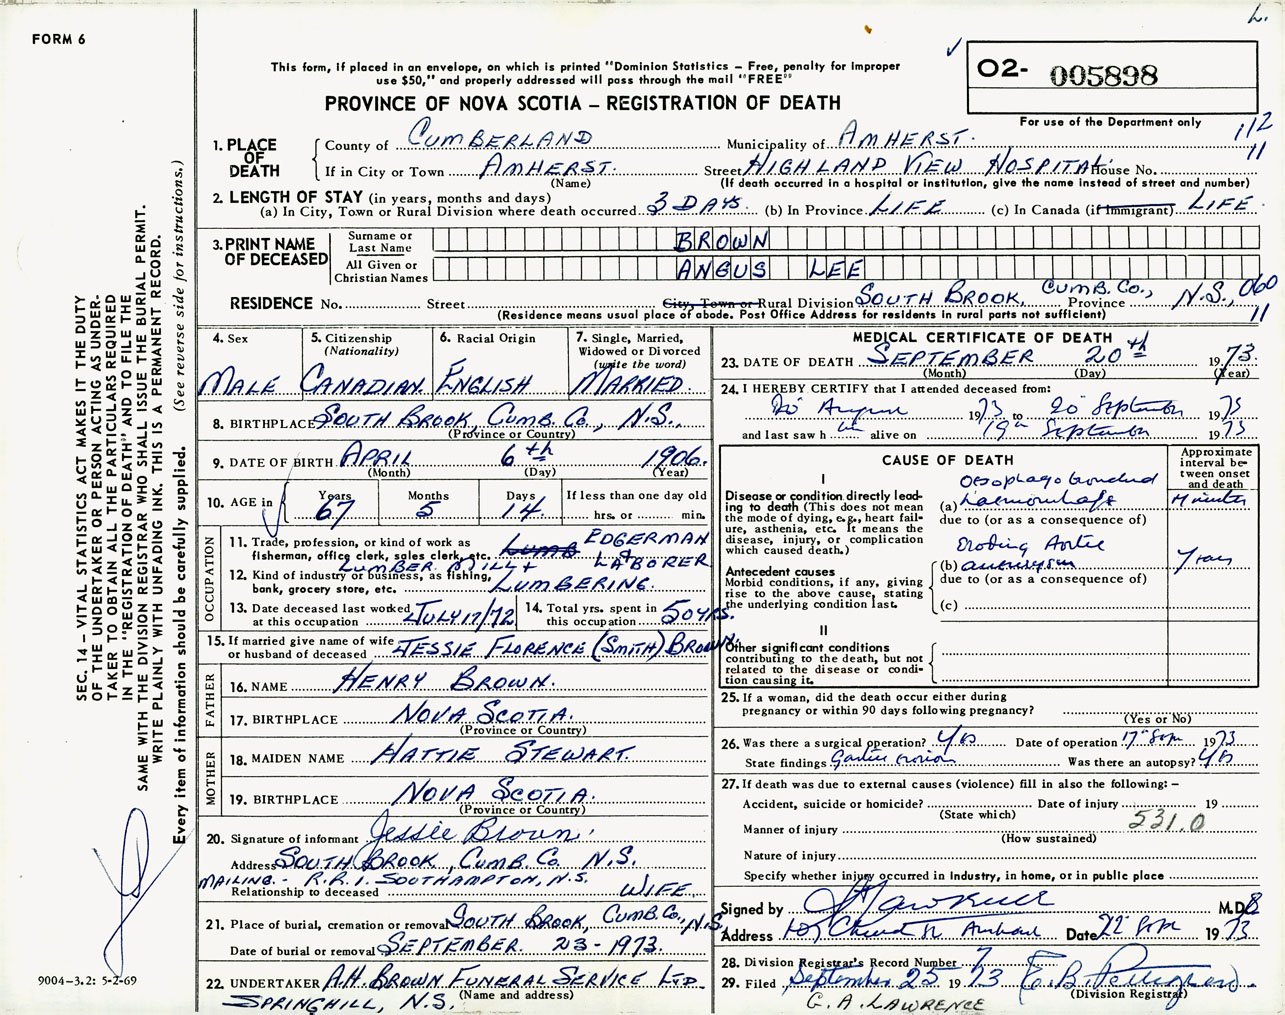 L.
FORM 6
This form, if placed in an envelope, on which is printed "Dominion Statistics – Free, penalty for improper
use $50," and properly addressed will pass through the mail "FREE"
PROVINCE OF NOVA SCOTIA – REGISTRATION OF DEATH
O2- 005898
For use of the Department only
112
11
1. PLACE OF DEATH
County of CUMBERLAND Municipality of AMHERST.
If in City or Town AMHERST. Street HIGHLAND VIEW HOSPITAL House No.
(Name) (If death occurred in a hospital or institution, give the name instead of street and number)
2. LENGTH OF STAY (in years, months and days)
(a) In City, Town or Rural Division where death occurred 3 DAYS. (b) In Province LIFE (c) In Canada (if immigrant) LIFE
3. PRINT NAME OF DECEASED
Surname or Last Name BROWN
All Given or Christian Names ANGUS LEE
RESIDENCE No. Street City, Town or Rural Division SOUTH BROOK, CUMB. CO., Province N.S., 060
(Residence means usual place of abode. Post Office Address for residents in rural parts not sufficient) 11
4. Sex MALE
5. Citizenship (Nationality) CANADIAN.
6. Racial Origin ENGLISH
7. Single, Married, Widowed or Divorced (write the word) MARRIED.
8. BIRTHPLACE SOUTH BROOK, CUMB. CO., N.S.,
(Province or Country)
9. DATE OF BIRTH APRIL 6th 1906.
(Month) (Day) (Year)
10. AGE in Years 67 Months 5 Days 14 If less than one day old hrs. or min.
OCCUPATION
11. Trade, profession, or kind of work as fisherman, office clerk, sales clerk, etc. LUMB EDGERMAN + LABORER
12. Kind of industry or business, as fishing, bank, grocery store, etc. LUMBER MILL + LUMBERING.
13. Date deceased last worked at this occupation JULY 17/72
14. Total yrs. spent in this occupation 50 YRS.
15. If married give name of wife or husband of deceased JESSIE FLORENCE (SMITH) BROWN.
FATHER
16. NAME HENRY BROWN.
17. BIRTHPLACE NOVA SCOTIA.
(Province or Country)
MOTHER
18. MAIDEN NAME HATTIE STEWART.
19. BIRTHPLACE NOVA SCOTIA.
(Province or Country)
20. Signature of informant Jessie Brown.
Address SOUTH BROOK, CUMB. CO. N.S.
MAILING - R.R.1. SOUTHAMPTON, N.S.
Relationship to deceased WIFE
21. Place of burial, cremation or removal SOUTH BROOK, CUMB. CO., N.S.
Date of burial or removal SEPTEMBER. 23-1973.
22. UNDERTAKER A.H. BROWN FUNERAL SERVICE LTD.
(Name and address)
SPRINGHILL, N.S.
MEDICAL CERTIFICATE OF DEATH
23. DATE OF DEATH SEPTEMBER 20th 1973.
(Month) (Day) (Year)
24. I HEREBY CERTIFY that I attended deceased from:
20 August 1973 to 20 September 1973
and last saw h im alive on 19th September 1973
CAUSE OF DEATH
Approximate interval between onset and death
I
Disease or condition directly leading to death (This does not mean the mode of dying, e.g., heart failure, asthenia, etc. It means the disease, injury, or complication which caused death.)
(a) haemorrhage Minutes
due to (or as a consequence of)
Antecedent causes
Morbid conditions, if any, giving rise to the above cause, stating the underlying condition last.
Eroding Aortic
(b) aneurysm Years
due to (or as a consequence of)
(c)
II
Other significant conditions
contributing to the death, but not related to the disease or condition causing it.
25. If a woman, did the death occur either during pregnancy or within 90 days following pregnancy?
(Yes or No)
26. Was there a surgical operation? Yes Date of operation 17 Sep 1973
State findings Was there an autopsy? Yes
27. If death was due to external causes (violence) fill in also the following: –
Accident, suicide or homicide? Date of injury 19
(State which)
531.0
Manner of injury
(How sustained)
Nature of injury
Specify whether injury occurred in industry, in home, or in public place
Signed by M.D. 8
Address 107 Church St Amherst Date 22 Sep 1973
28. Division Registrar's Record Number 7
29. Filed September 25 1973 E. B.
(Division Registrar)
G. A. LAWRENCE
SEC. 14 – VITAL STATISTICS ACT MAKES IT THE DUTY
OF THE UNDERTAKER OR PERSON ACTING AS UNDER-
TAKER TO OBTAIN ALL THE PARTICULARS REQUIRED
IN THE "REGISTRATION OF DEATH" AND TO FILE THE
SAME WITH THE DIVISION REGISTRAR WHO SHALL ISSUE THE BURIAL PERMIT.
WRITE PLAINLY WITH UNFADING INK. THIS IS A PERMANENT RECORD.
Every item of information should be carefully supplied. (See reverse side for instructions.)
9004-3.2: 5-2-69